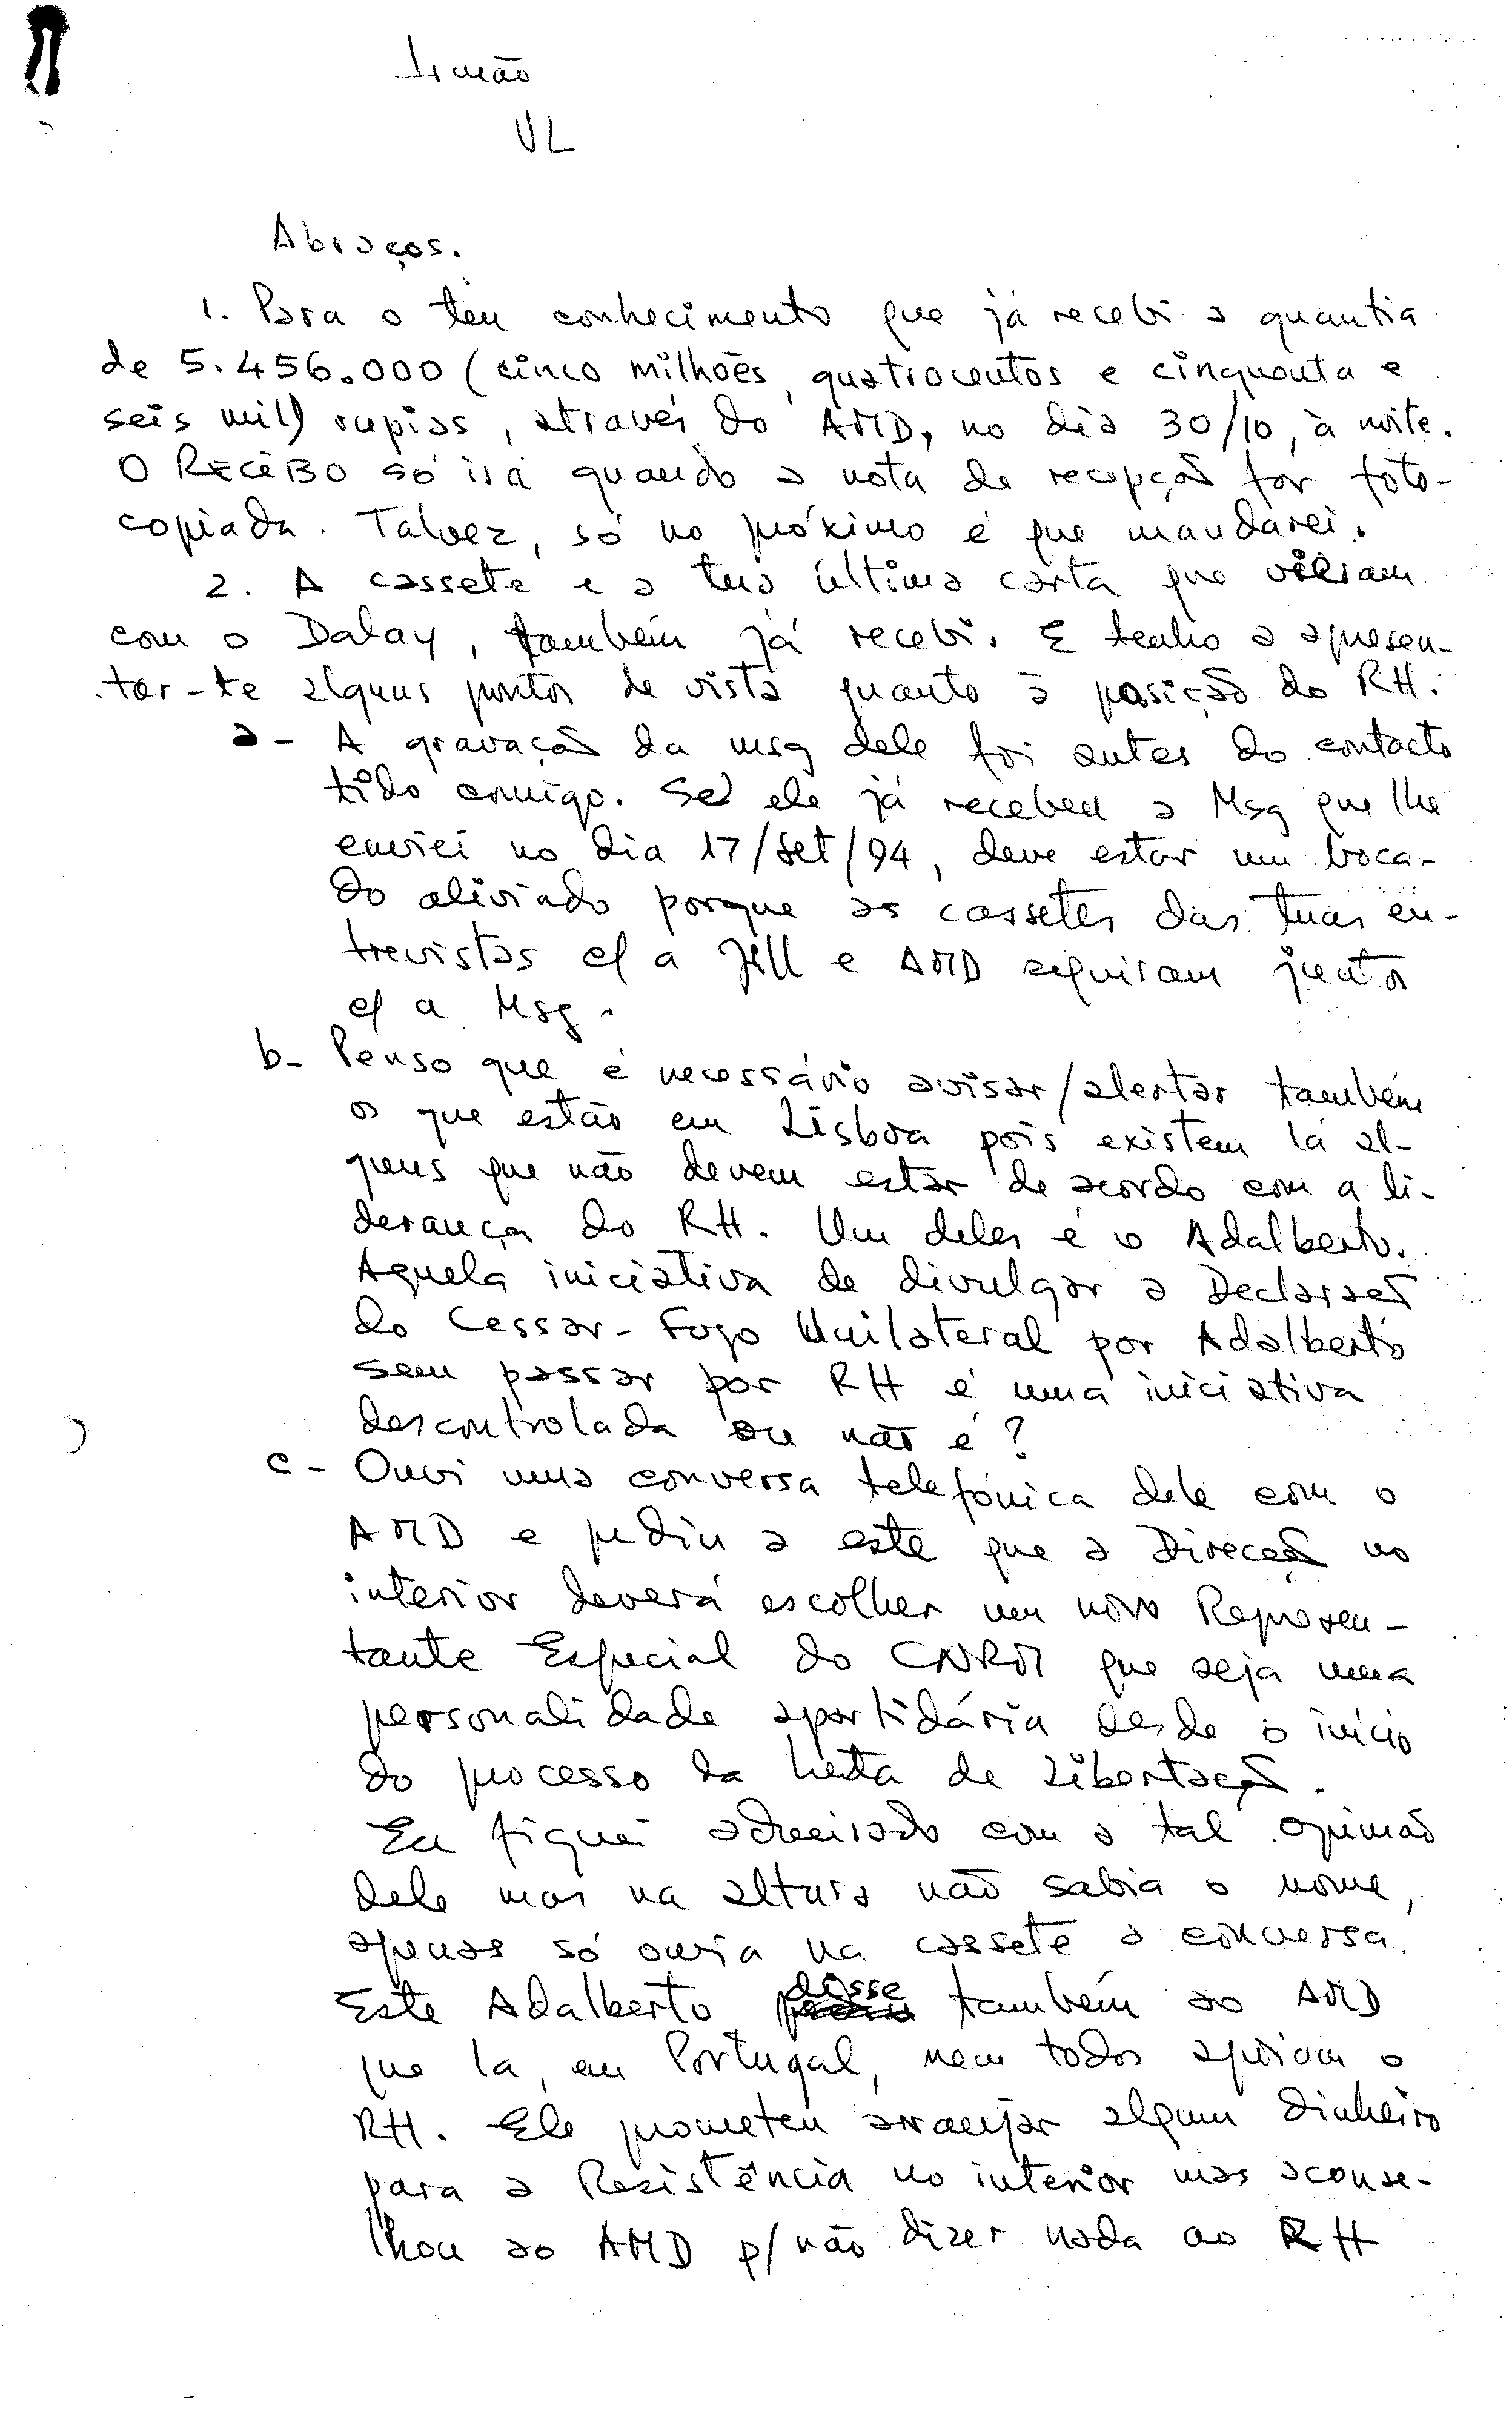 Irmão
VL
Abraços.
1. Para o teu conhecimento que já recebi a quantia
de 5.456.000 (cinco milhões, quatrocentos e cinquenta e
seis mil) rupias, através do AMD, no dia 30/10, à noite.
O RECIBO só irá quando a nota de recepção for foto-
copiada. Talvez, só no próximo é que mandarei.
2. A cassete e a tua última carta que vieram
com o Dalay, também já recebi. E tenho a apresen-
tar-te alguns pontos de vista quanto à posição do RH.
a- A gravação da msg dele foi antes do contacto
tido comigo. Se ele já recebeu a Msg que lhe
enviei no dia 17/Set/94, deve estar um boca-
do aliviado porque as cassetes das tuas en-
trevistas c/ a Jill e AMD seguiram juntos
c/ a Msg.
b- Penso que é necessário avisar/alertar também
os que estão em Lisboa pois existem lá al-
guns que não devem estar de acordo com a li-
derança do RH. Um deles é o Adalberto.
Aquela iniciativa de divulgar a Declaração
do Cessar-Fogo Unilateral por Adalberto
sem passar por RH é uma iniciativa
descontrolada ou não é?
c- Ouvi uma conversa telefónica dele com o
AMD e pediu a este que a Direcção no
interior deverá escolher um novo Represen-
tante Especial do CNRM que seja uma
personalidade apartidária desde o início
do processo da Luta de Libertação.
Eu fiquei admirado com a tal opinião
dele mas na altura não sabia o nome,
apenas só ouvia na cassete a conversa.
Este Adalberto disse também ao AMD
que lá, em Portugal, nem todos apoiam o
RH. Ele prometeu arranjar algum dinheiro
para a Resistência no interior mas aconse-
lhou ao AMD p/ não dizer nada ao RH